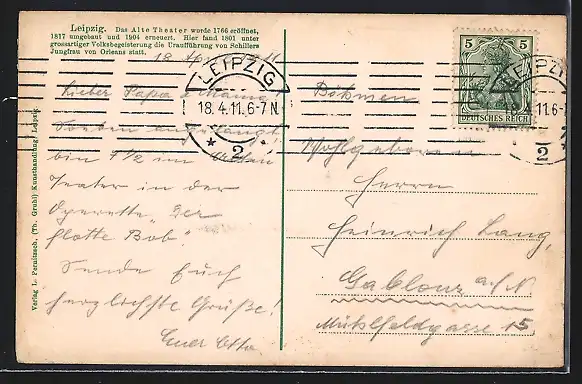 Leipzig. Das Alte Theater wurde 1766 eröffnet,
1817 umgebaut und 1904 erneuert. Hier fand 1801 unter
grossartiger Volksbegeisterung die Uraufführung von Schillers
Jungfrau von Orleans statt.
18. Apr. 11
Lieber Papa & Mama!
Soeben angelangt,
bin 9 1/2 im
Teater in der
Operette "Der
flotte Bob".
Sende Euch
herzlichste Grüße!
Euer Otto
Verlag L. Pernitzsch, (Th. Gruhl) Kunsthandlung, Leipzig.
LEIPZIG
18.4.11.6-7N.
* 2 *
5 5
DEUTSCHES REICH
LEIPZIG
11.6-7
2 *
Böhmen
Wohlgeboren
Herrn
Heinrich Lang,
Gablonz a./N.
Mühlfeldgasse 15